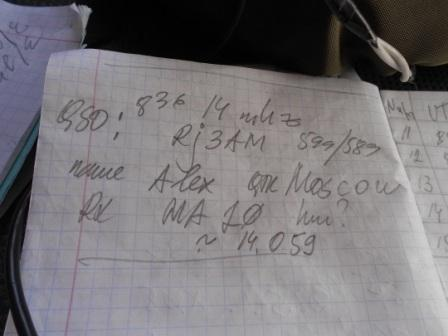 QSO: 8³⁶ 14 mhz
Rj3AM 599/589
name Alex QTH Moscow
RX MA
≈ 14.059
Nu
UT
11
12
13
14